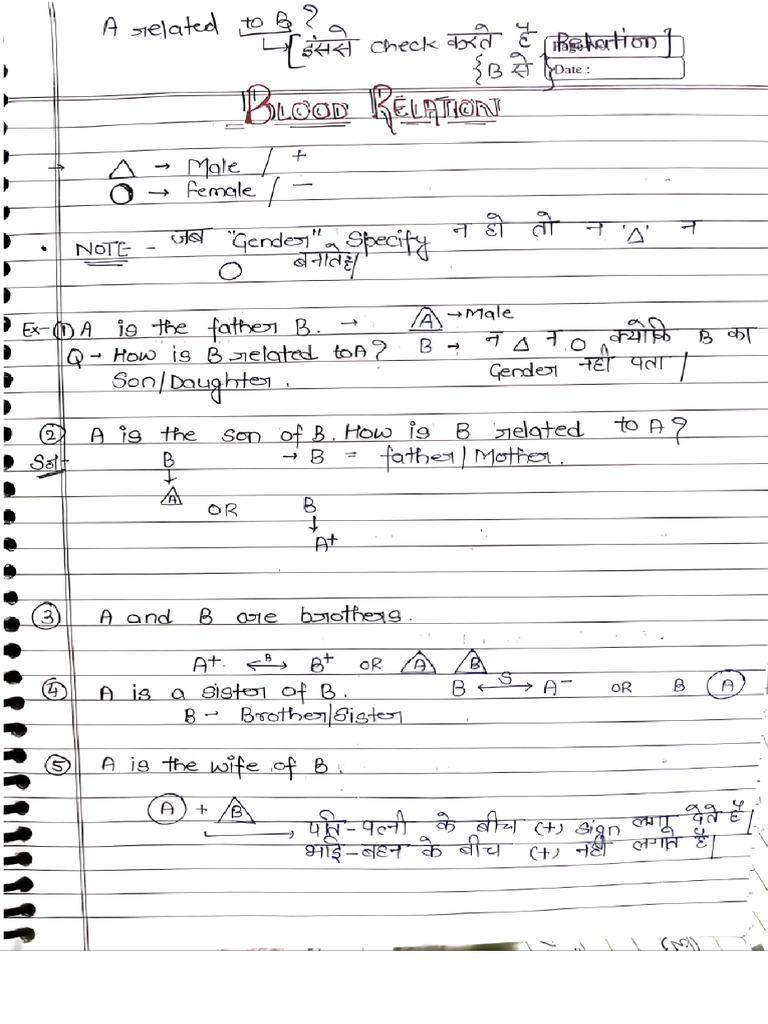 A related to B?
→ [इससे check करते है Relation]
{B से}
Date :
BLOOD RELATION
→ △ → Male / +
○ → female / −
• NOTE - जब "Gender" Specify न हो तो न '△' न
○ बनाते है|
Ex-① A is the father B. → A → Male
Q → How is B related to A? B → न △ न ○ क्योकि B का
Son/Daughter. Gender नही पता |
② A is the son of B. How is B related to A?
Sol- B → B = father/Mother.
↓
A OR B
↓
A+
③ A and B are brothers.
A+ ←B→ B+ OR A B
④ A is a sister of B. B ←S→ A− OR B A
B - Brother/Sister
⑤ A is the wife of B.
A + B
→ पति-पत्नी के बीच (+) sign लगा देते है|
भाई-बहन के बीच (+) नही लगाते है|